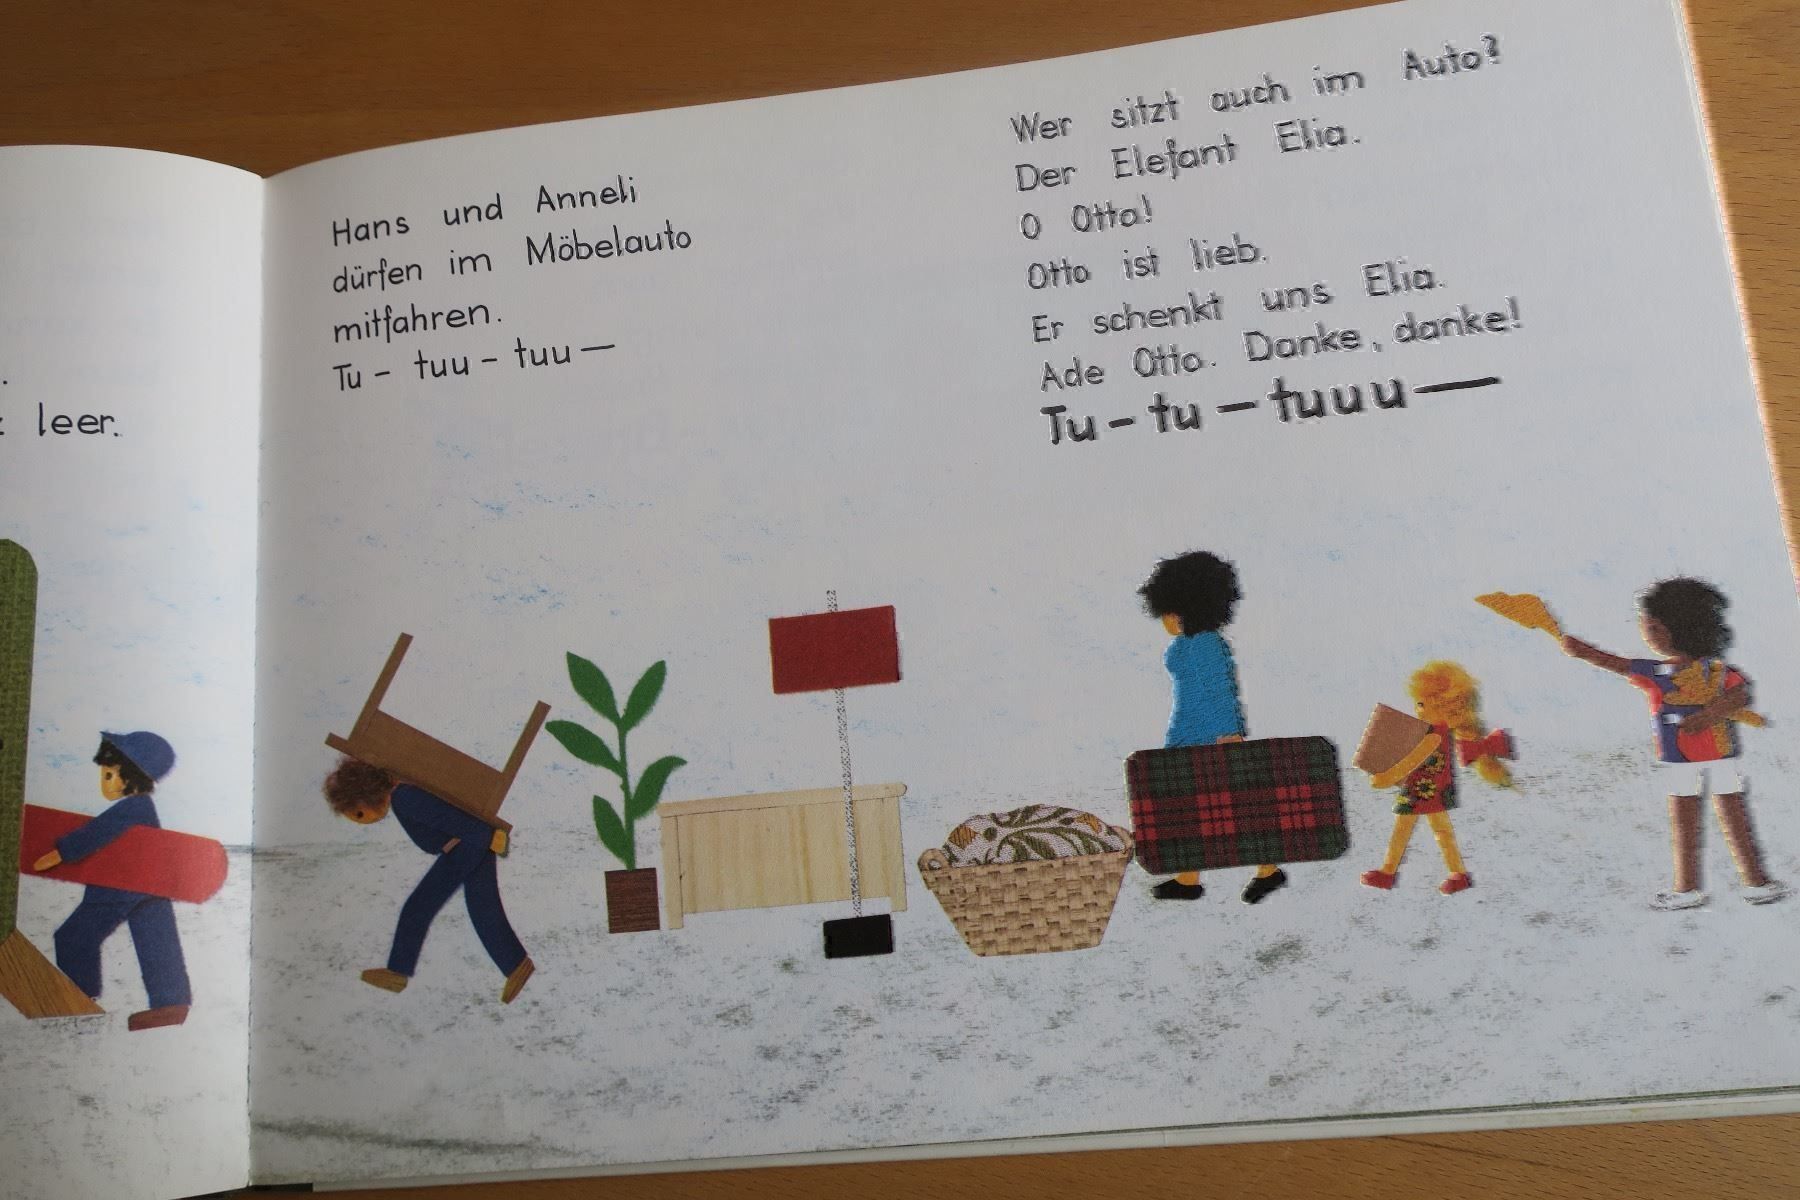 leer.
Hans und Anneli
dürfen im Möbelauto
mitfahren.
Tu – tuu – tuu —
Wer sitzt auch im Auto?
Der Elefant Elia.
O Otto!
Otto ist lieb.
Er schenkt uns Elia.
Ade Otto. Danke, danke!
Tu – tu – tuuu —